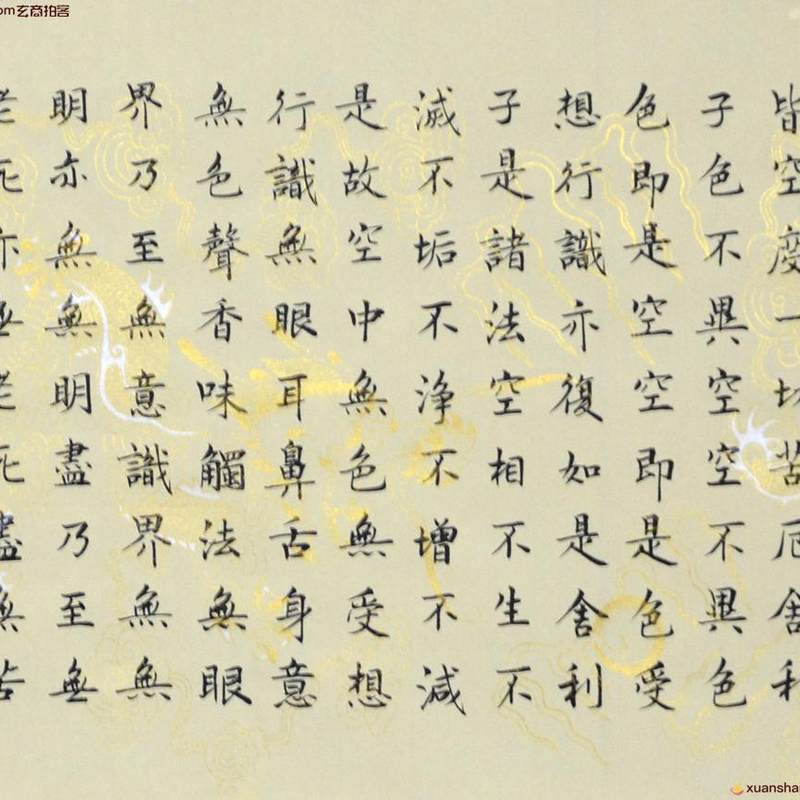 皆空度一切苦厄舍利
子色不異空空不異色
色即是空空即是色受
想行識亦復如是舍利
子是諸法空相不生不
滅不垢不淨不增不減
是故空中無色無受想
行識無眼耳鼻舌身意
無色聲香味觸法無眼
界乃至無意識界無無
明亦無無明盡乃至無
老死亦無老死盡無苦
om玄商拍客
xuansha